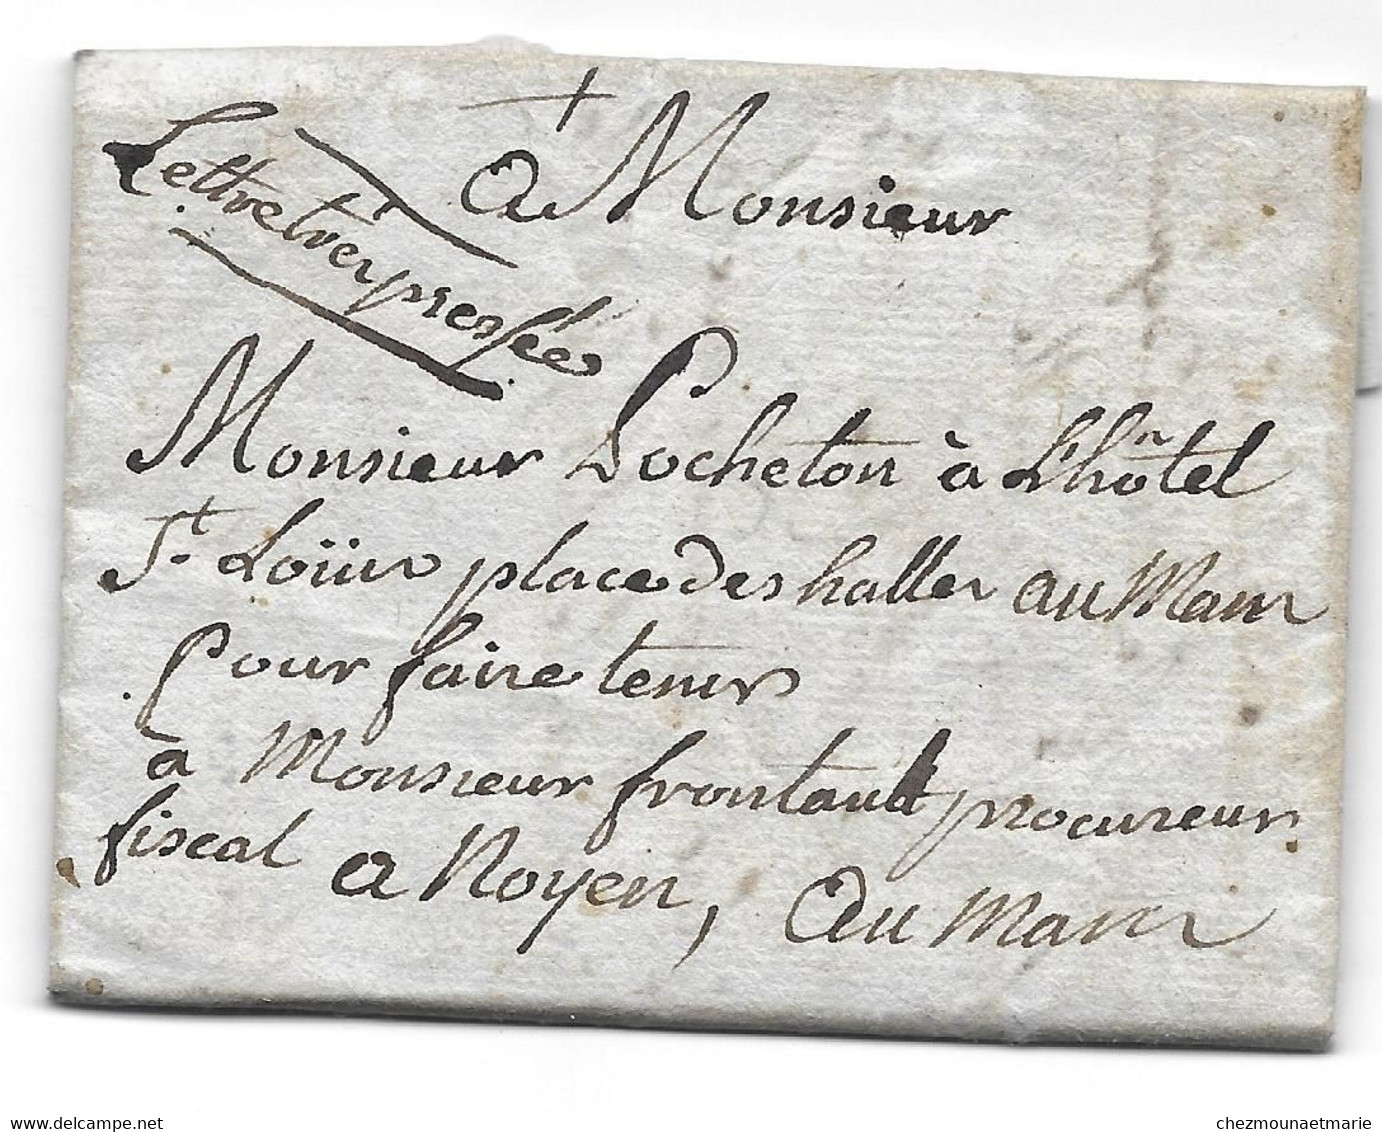 Lettre tres pressée
a Monsieur
Monsieur Locheton à L'hôtel
St Loüis place des halles au Mans
pour faire tenir
à Monsieur frontault procureur
fiscal a Noyen, au Mans
chezmounaetmarie